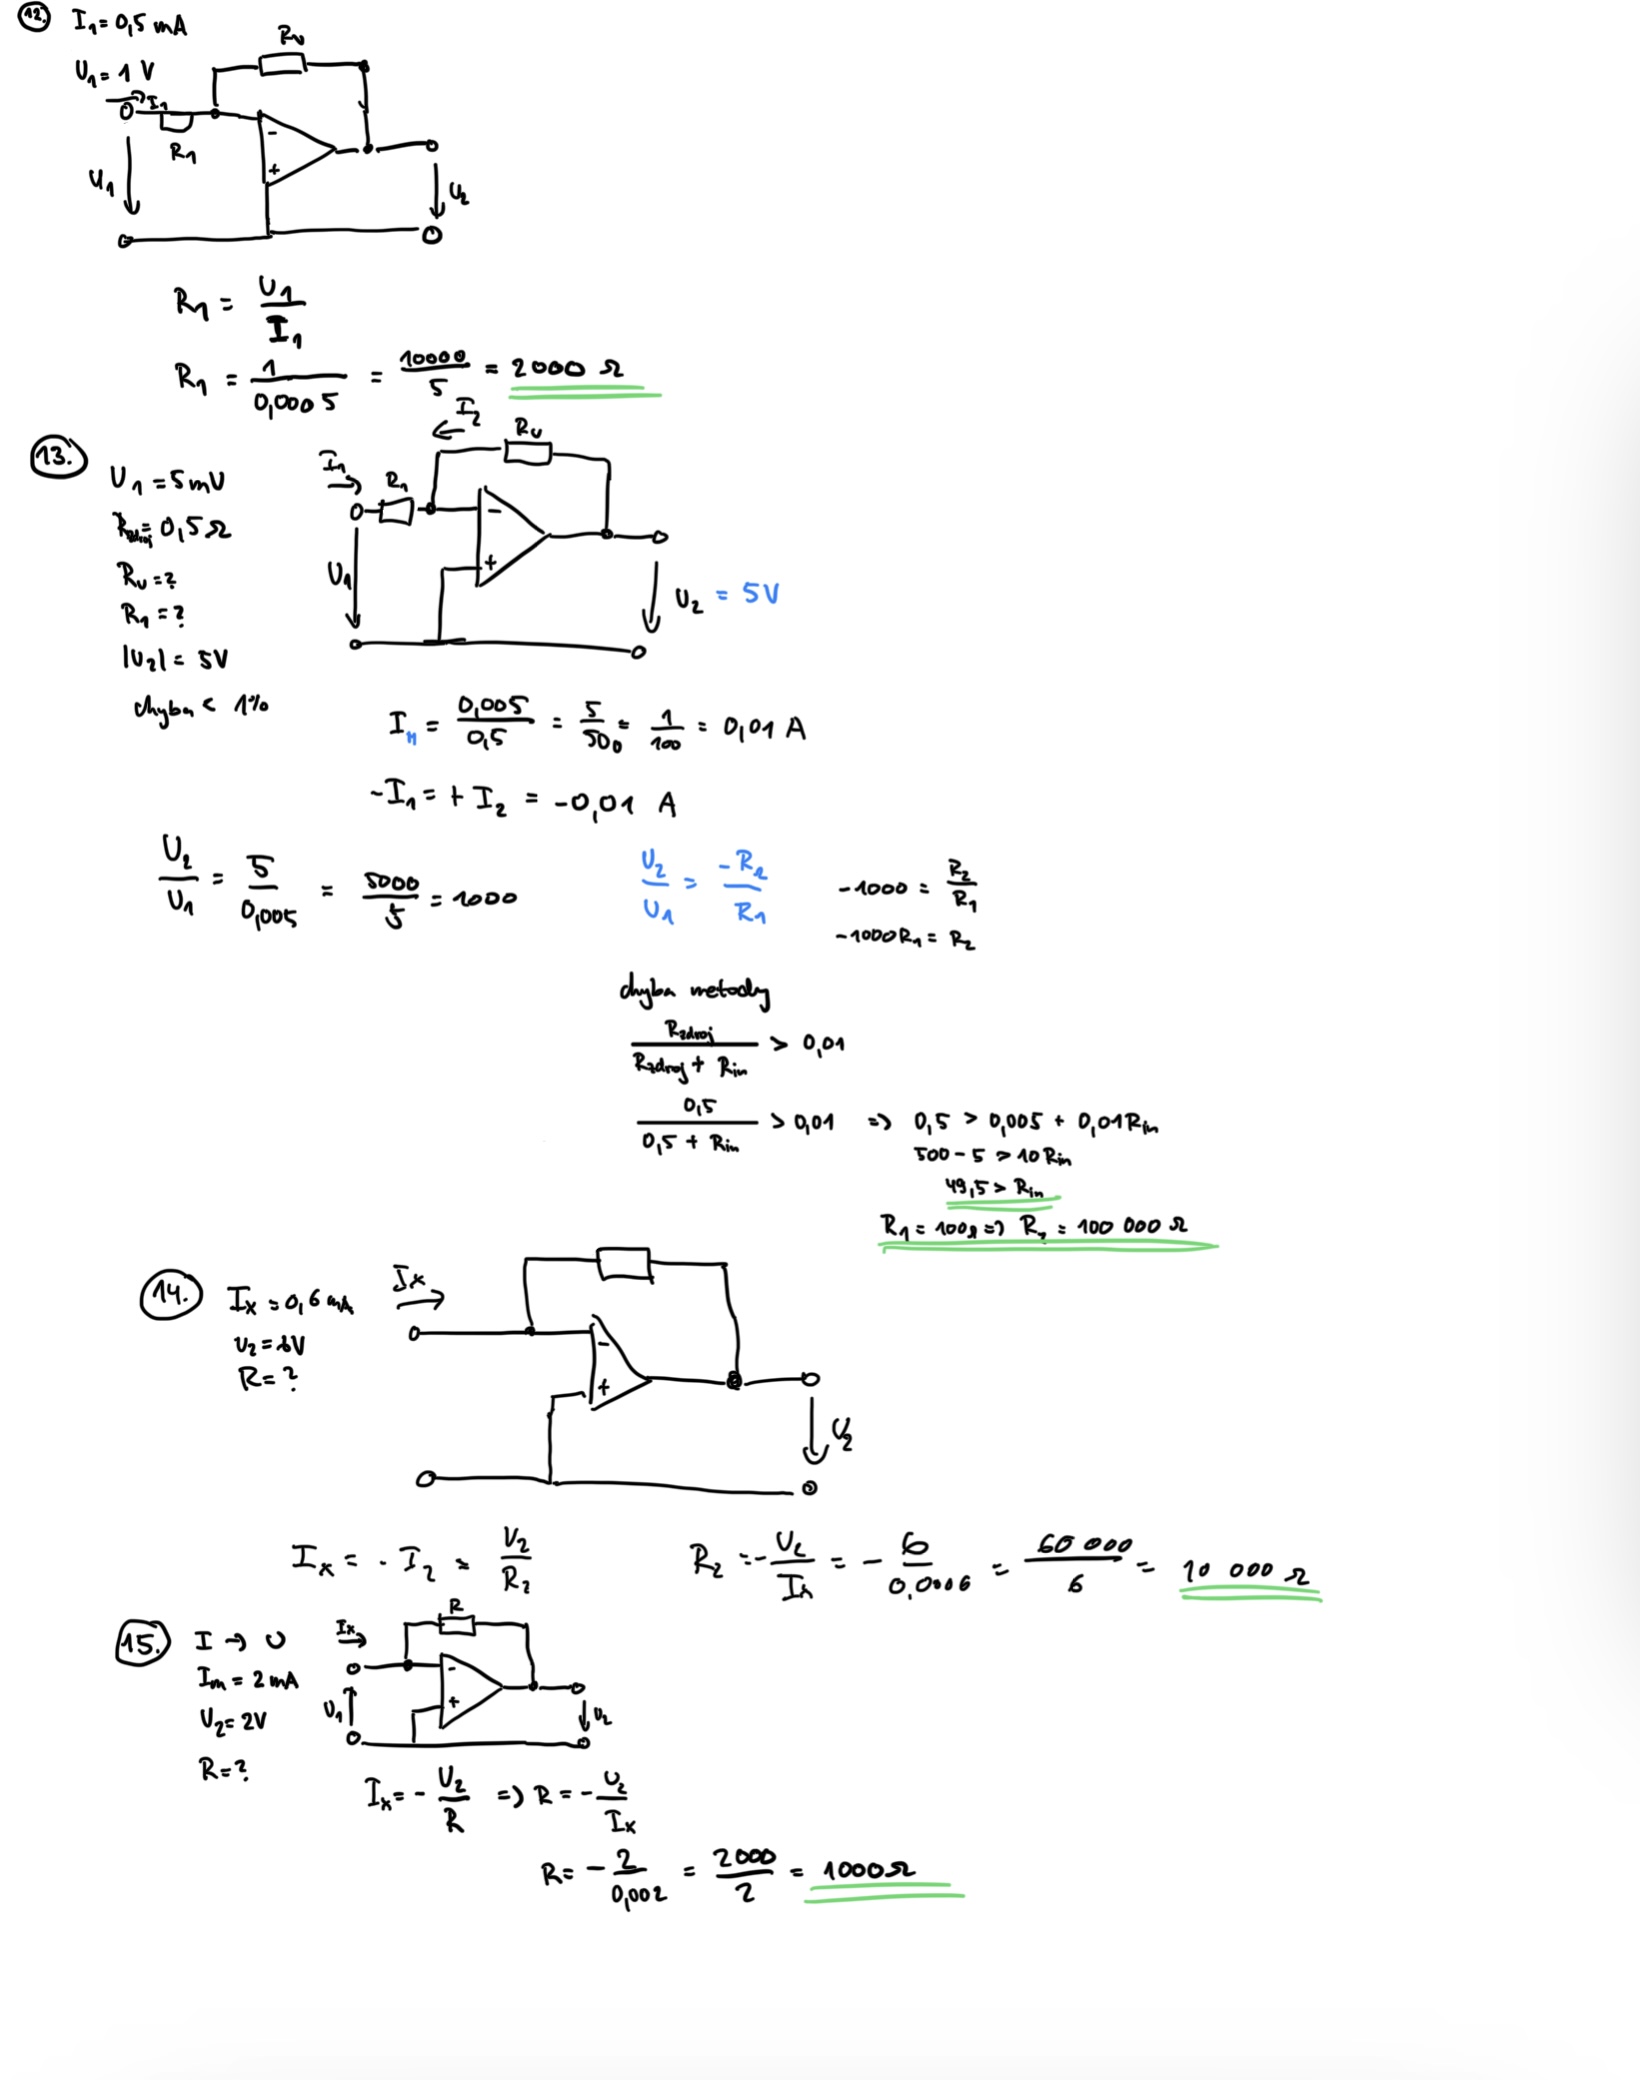 12. I₁ = 0,5 mA
U₁ = 1 V
Rᵥ
I₁
R₁
-
+
U₁
U₂
R₁ = U₁ / I₁
R₁ = 1 / 0,0005 = 10000 / 5 = 2000 Ω
13.
U₁ = 5mV
Rzdroj = 0,5 Ω
Rᵥ = ?
R₁ = ?
|U₂| = 5V
chyba < 1%
I₂
Rᵥ
I₁
R₁
-
+
U₁
U₂ = 5V
I₁ = 0,005 / 0,5 = 5 / 500 = 1 / 100 = 0,01 A
-I₁ = + I₂ = -0,01 A
U₂ / U₁ = 5 / 0,005 = 5000 / 5 = 1000
U₂ / U₁ = -R₂ / R₁
-1000 = R₂ / R₁
-1000R₁ = R₂
chyba metody
Rzdroj / Rzdroj + Rin > 0,01
0,5 / 0,5 + Rin > 0,01 => 0,5 > 0,005 + 0,01Rin
500 - 5 > 10 Rin
49,5 > Rin
R₁ = 100Ω => R₂ = 100 000 Ω
14. Iₓ = 0,6 mA
U₂ = 6V
R = ?
Iₓ
-
+
U₂
Iₓ = - I₂ = U₂ / R₂
R₂ = - U₂ / Iₓ = - 6 / 0,0006 = 60 000 / 6 = 10 000 Ω
15. I → U
Im = 2 mA
U₂ = 2V
R = ?
Iₓ
R
-
+
U₁
U₂
Iₓ = - U₂ / R => R = - U₂ / Iₓ
R = - 2 / 0,002 = 2000 / 2 = 1000Ω